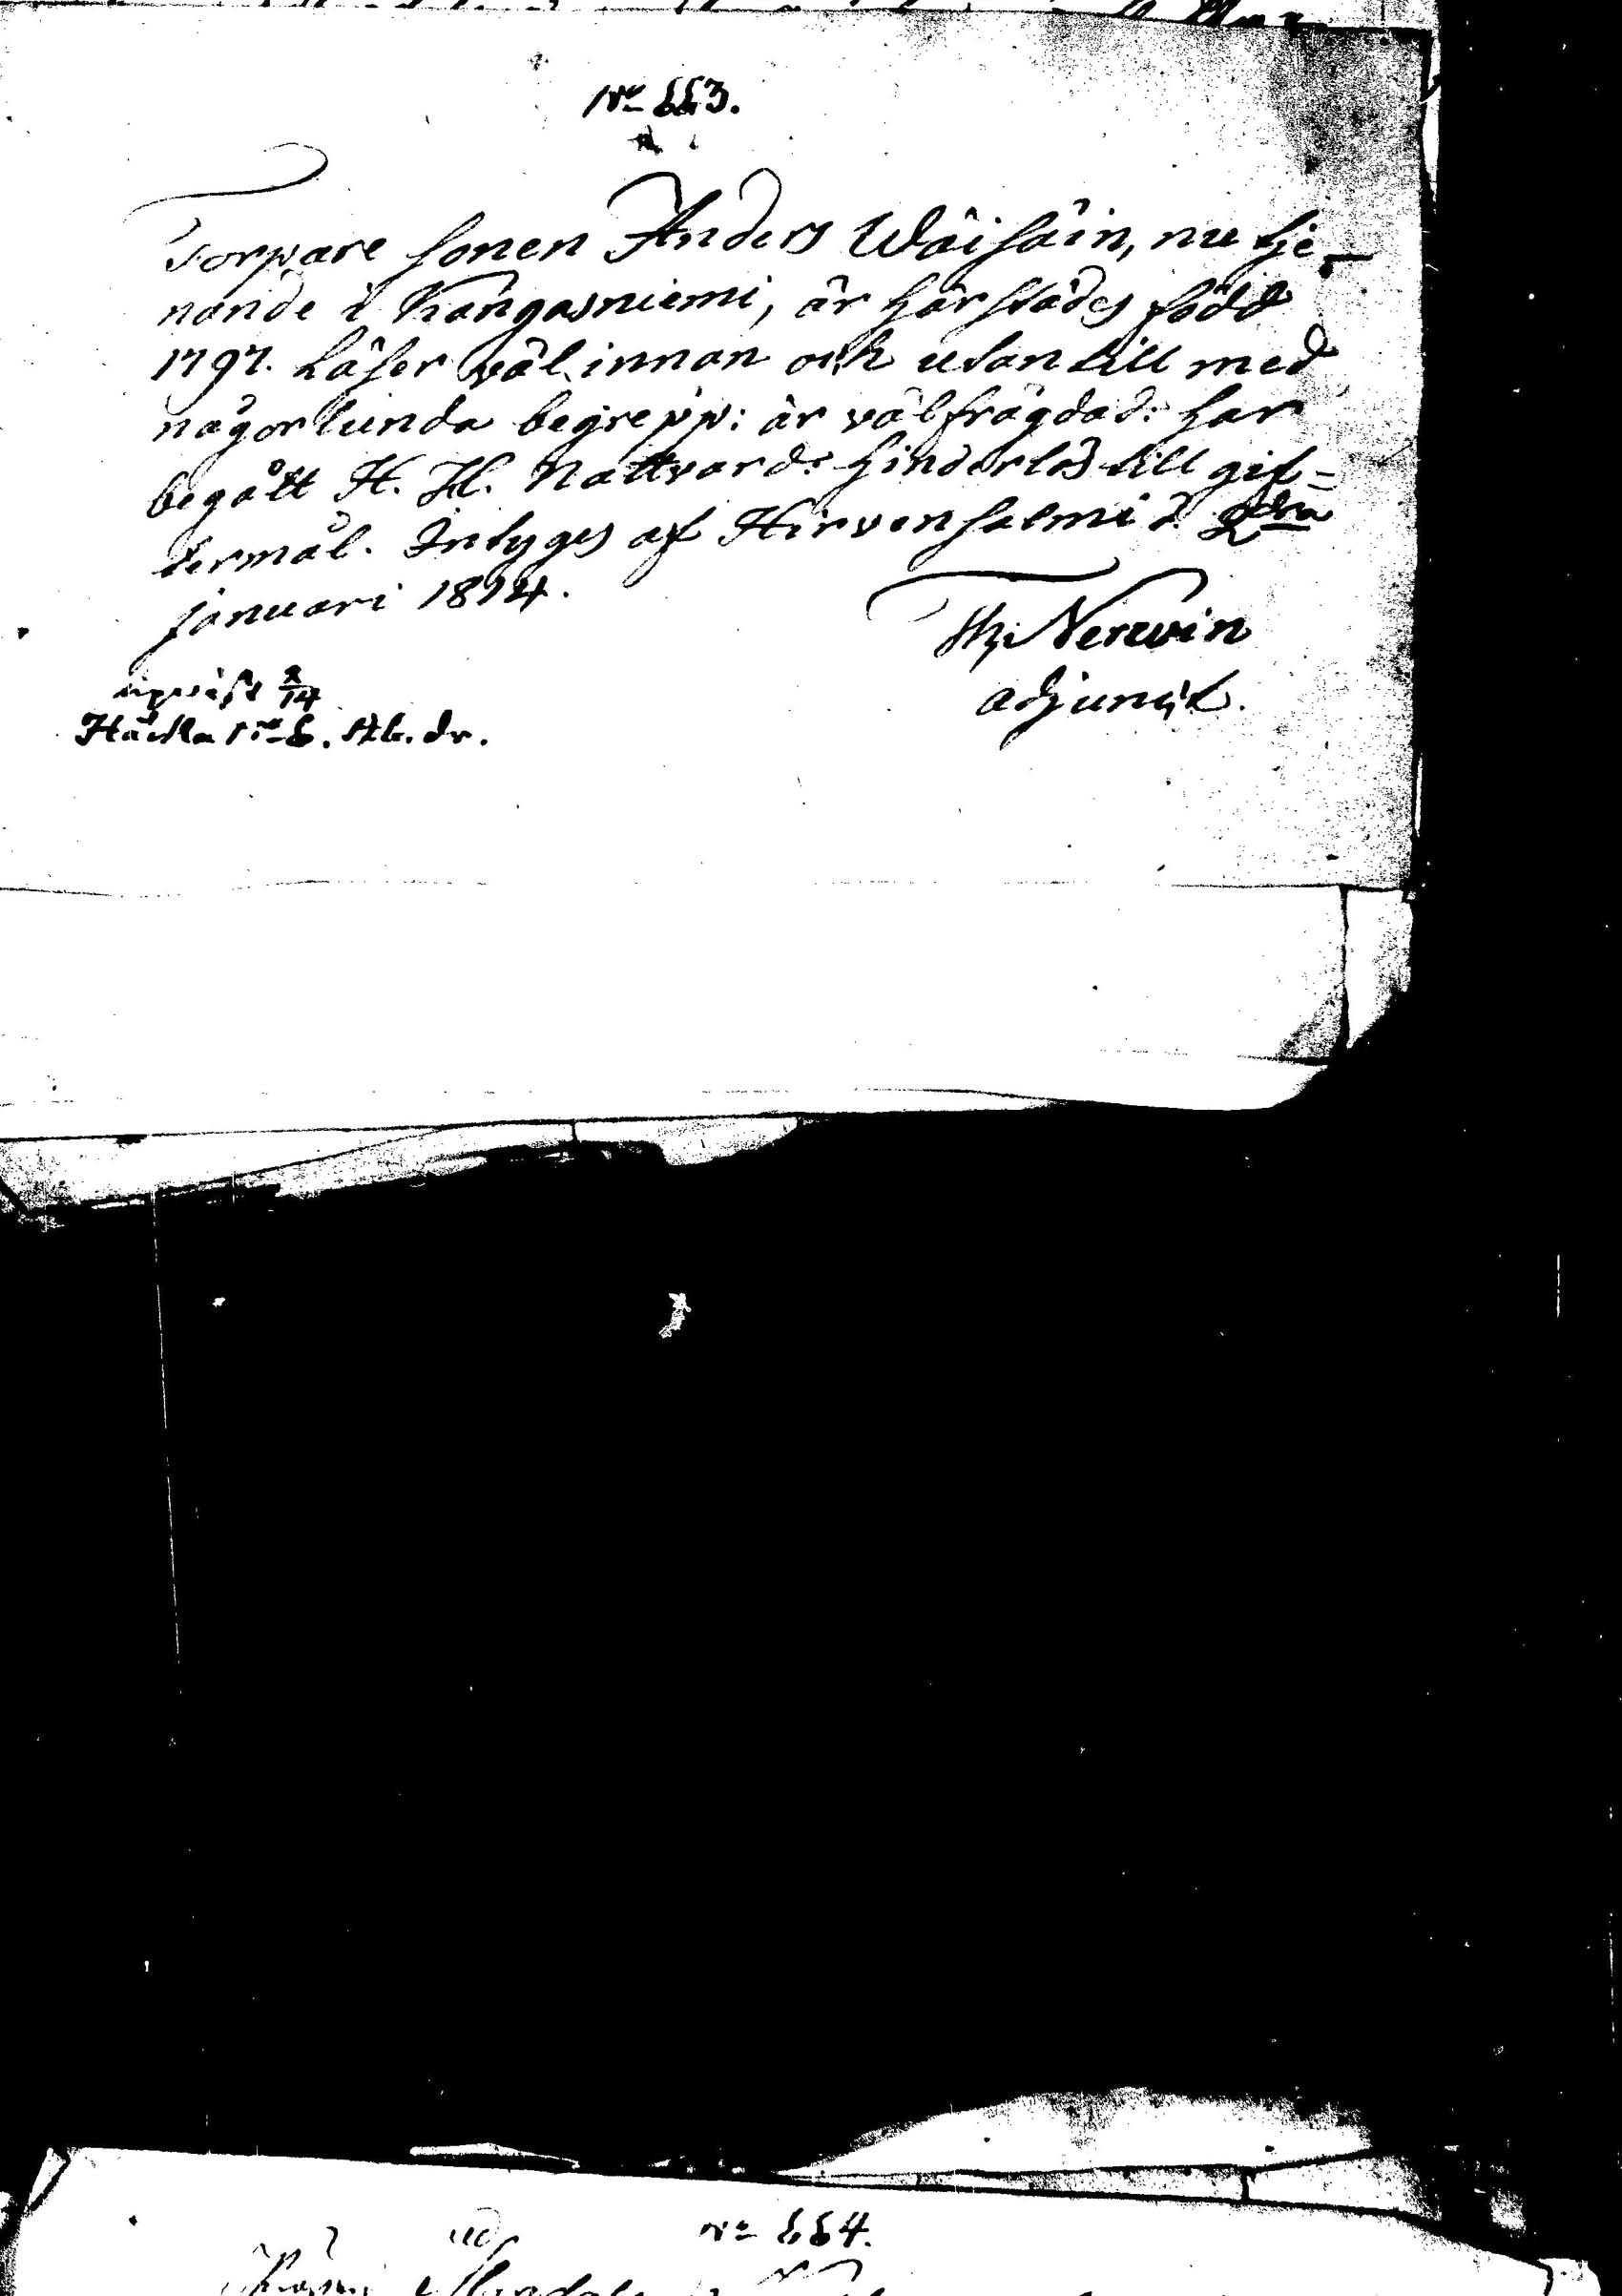 No 663.
Torpare sonen Anders Wäisäin, nu tje-
nande i Kangasniemi, är härstädes född
1797. Läser väl innan och utan till med
någorlunda begrepp: är välfrägdad: har
begått H. H. Nattvard: hinderlös till gif=
termål. Intyges af Hirvensalmi d. 2dra
januari 1814.
Th: Nerwin
adjunct.
No 664.